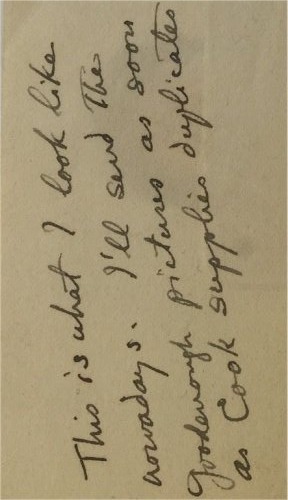 This is what I look like
nowadays. I'll send the
Goodenough pictures as soon
as Cook supplies duplicates